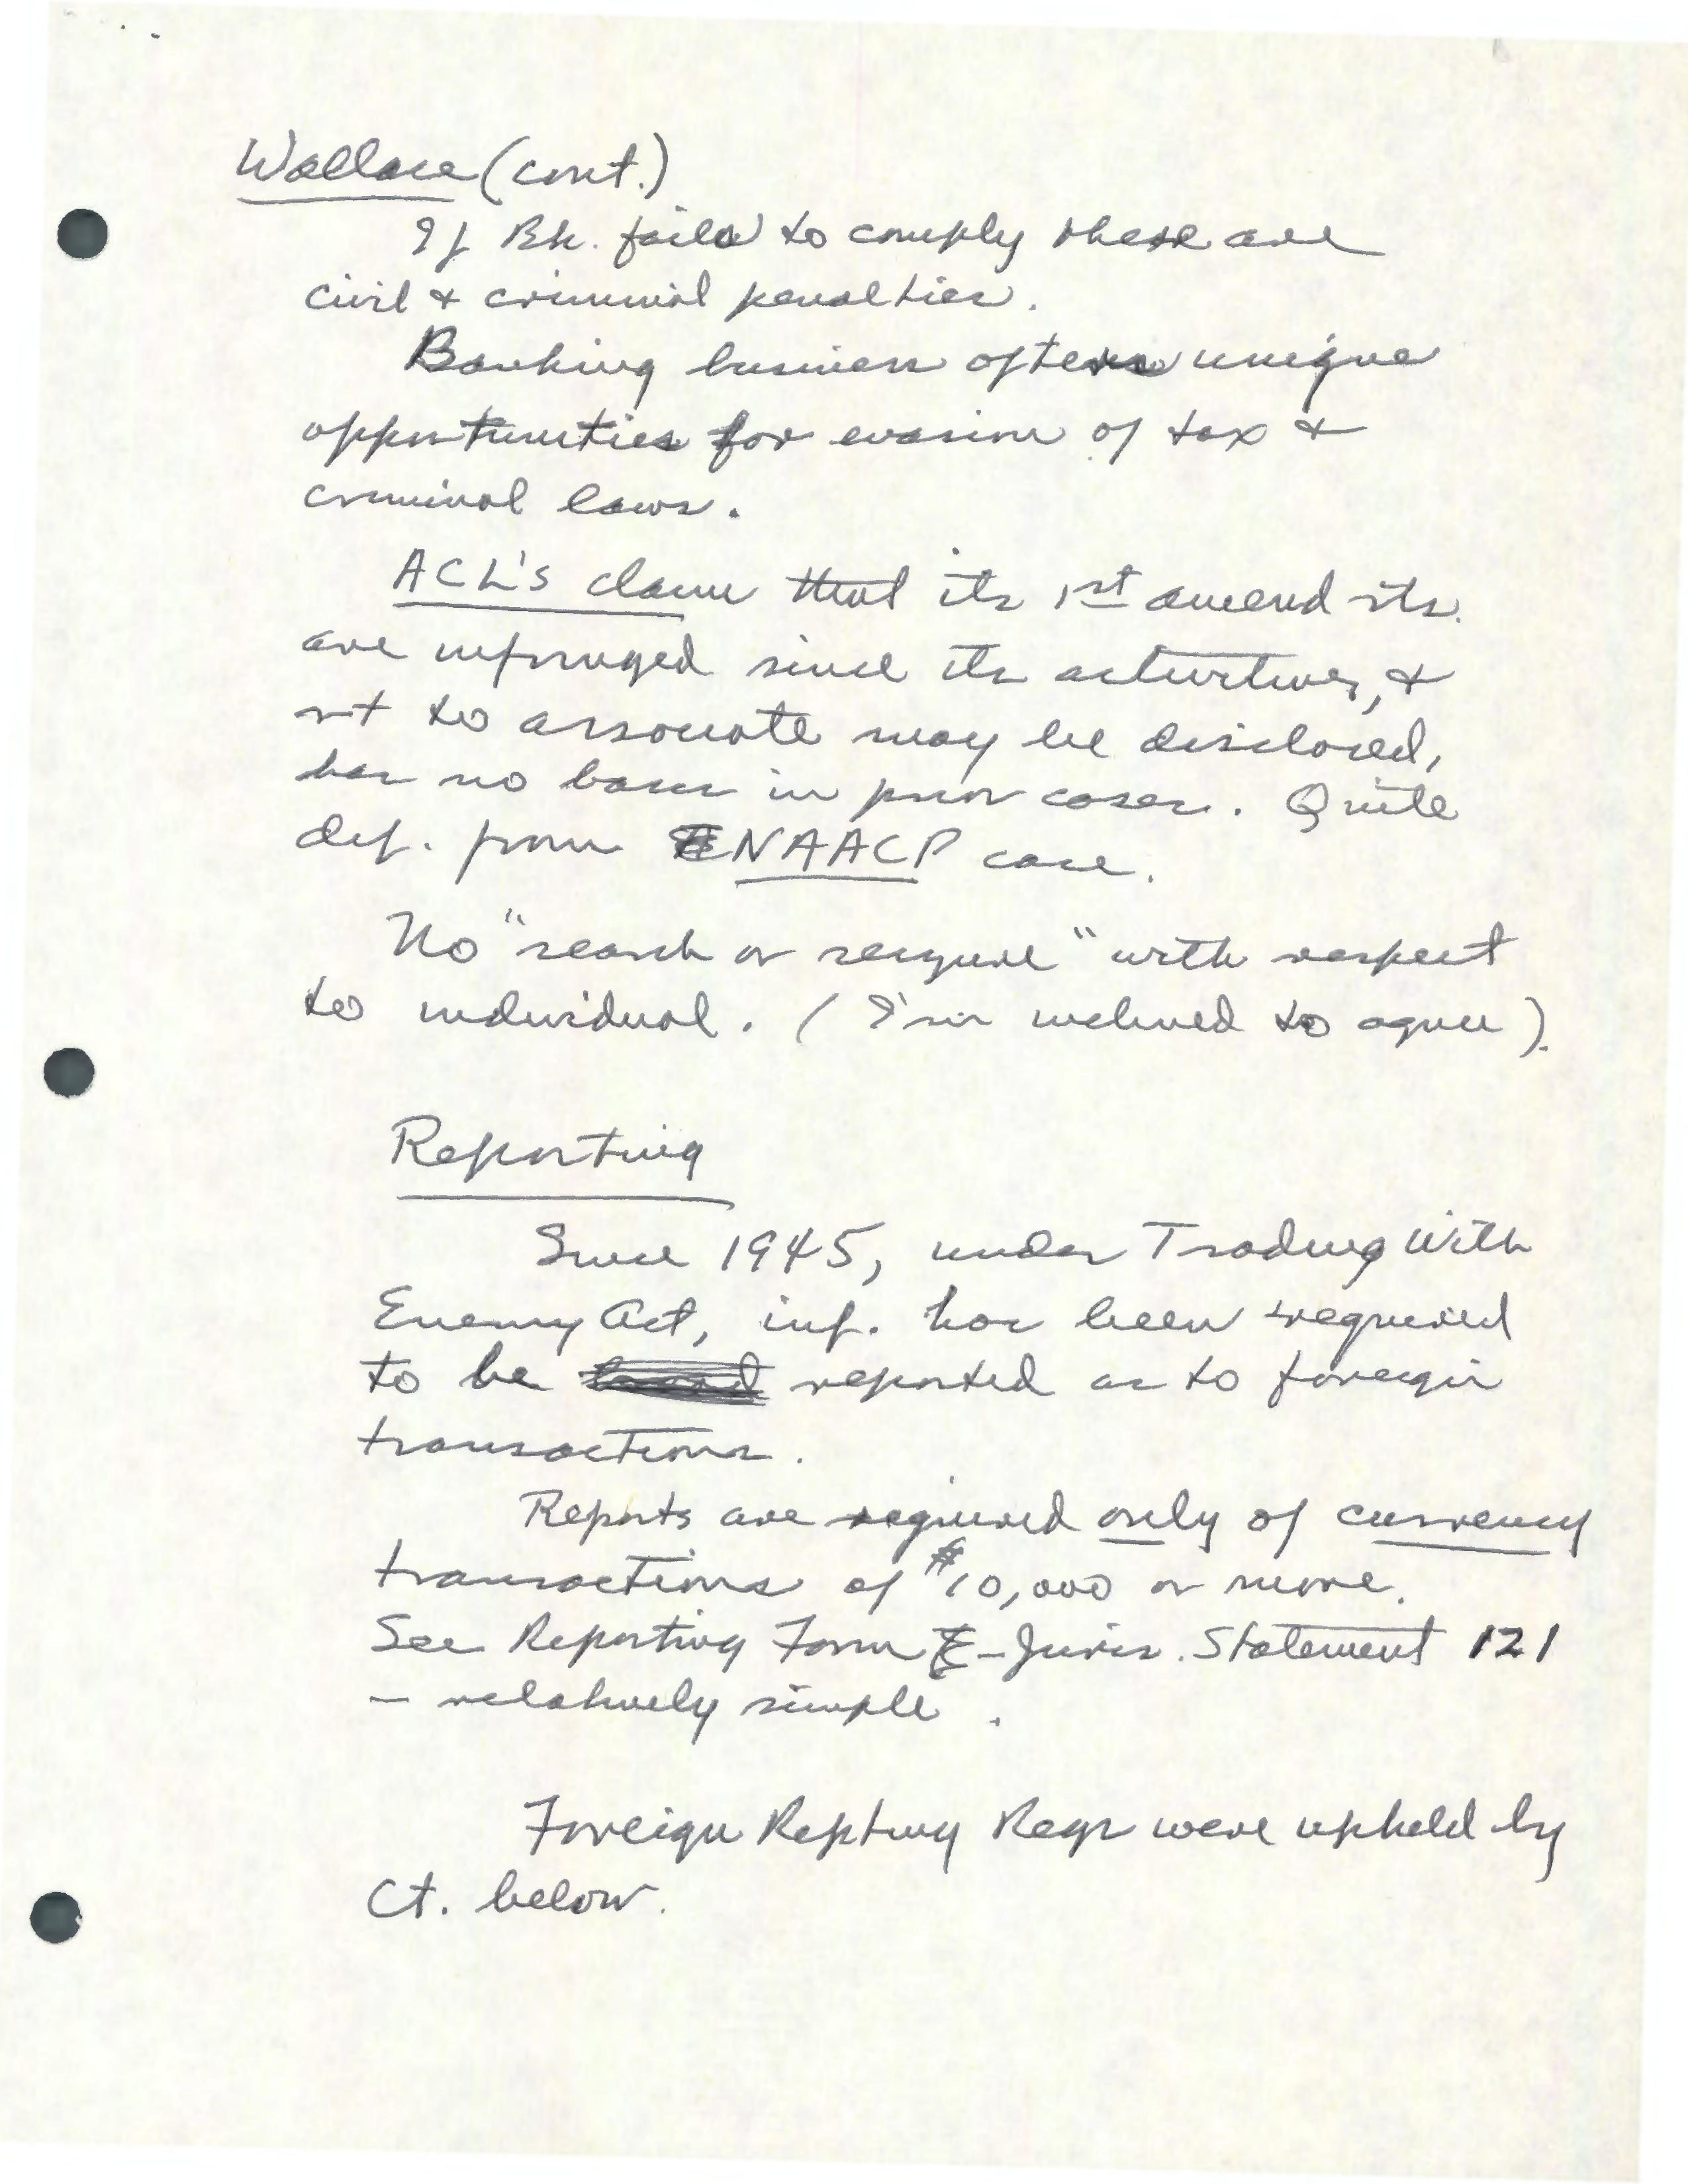 Wallace (cont.)
If Bk. fails to comply there are
civil & criminal penalties.
Banking business often unique
opportunities for evasion of tax &
criminal laws.
ACL's claim that its 1st amend rts.
are infringed since its activities, &
rt to associate may be disclosed,
has no basis in prior cases. Quite
dif. from NAACP case.
No "search or seizure" with respect
to individual. (I'm inclined to agree).
Reporting
Since 1945, under Trading With
Enemy Act, inf. has been required
to be reported as to foreign
transactions.
Reports are required only of currency
transactions of $10,000 or more.
See Reporting Form - Juris. Statement 121
- relatively simple.
Foreign Repting Regs were upheld by
Ct. below.